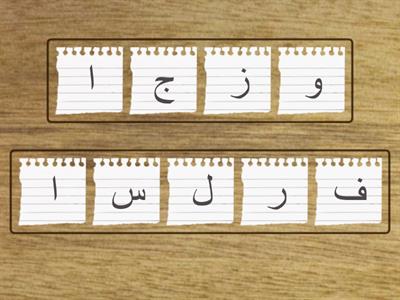 و ز ج ا
ف ر ل س ا